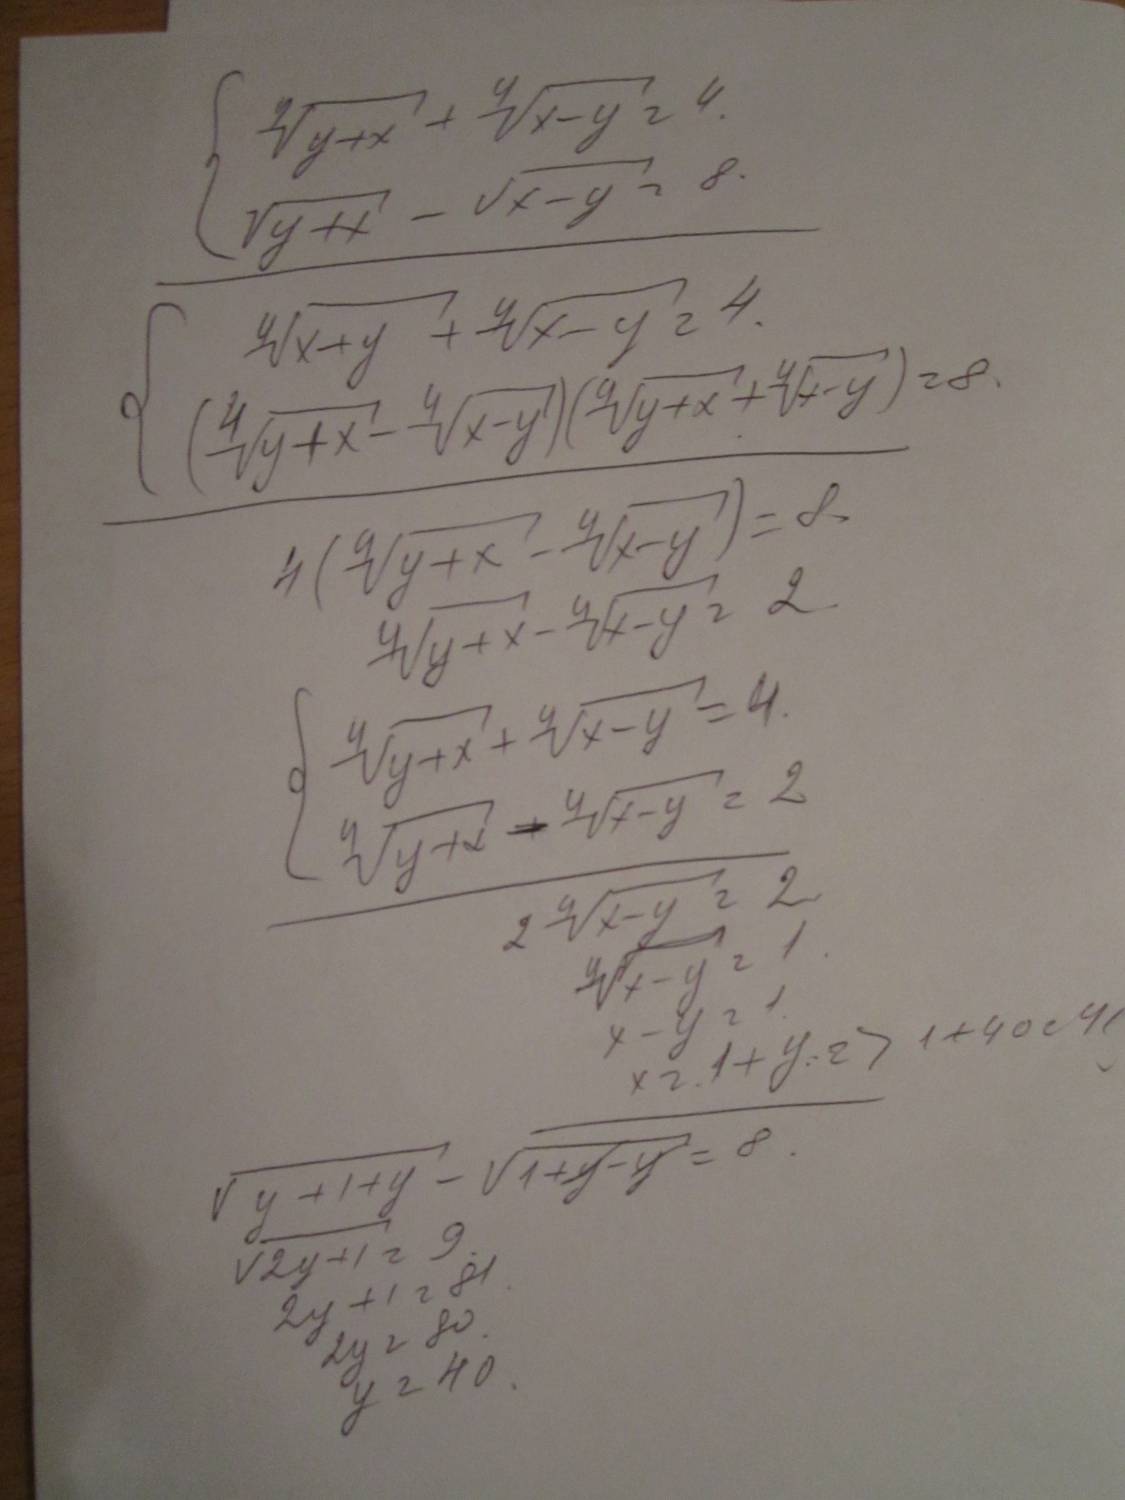 ⁴√(y+x) + ⁴√(x-y) = 4.
√(y+x) - √(x-y) = 8.
⁴√(x+y) + ⁴√(x-y) = 4.
(⁴√(y+x) - ⁴√(x-y))(⁴√(y+x) + ⁴√(x-y)) = 8.
4(⁴√(y+x) - ⁴√(x-y)) = 8
⁴√(y+x) - ⁴√(x-y) = 2
⁴√(y+x) + ⁴√(x-y) = 4.
⁴√(y+x) - ⁴√(x-y) = 2
2⁴√(x-y) = 2
⁴√(x-y) = 1.
x-y = 1.
x = 1+y => 1+40=41
√(y+1+y) - √(1+y-y) = 8.
√(2y+1) = 9.
2y+1 = 81.
2y = 80.
y = 40.